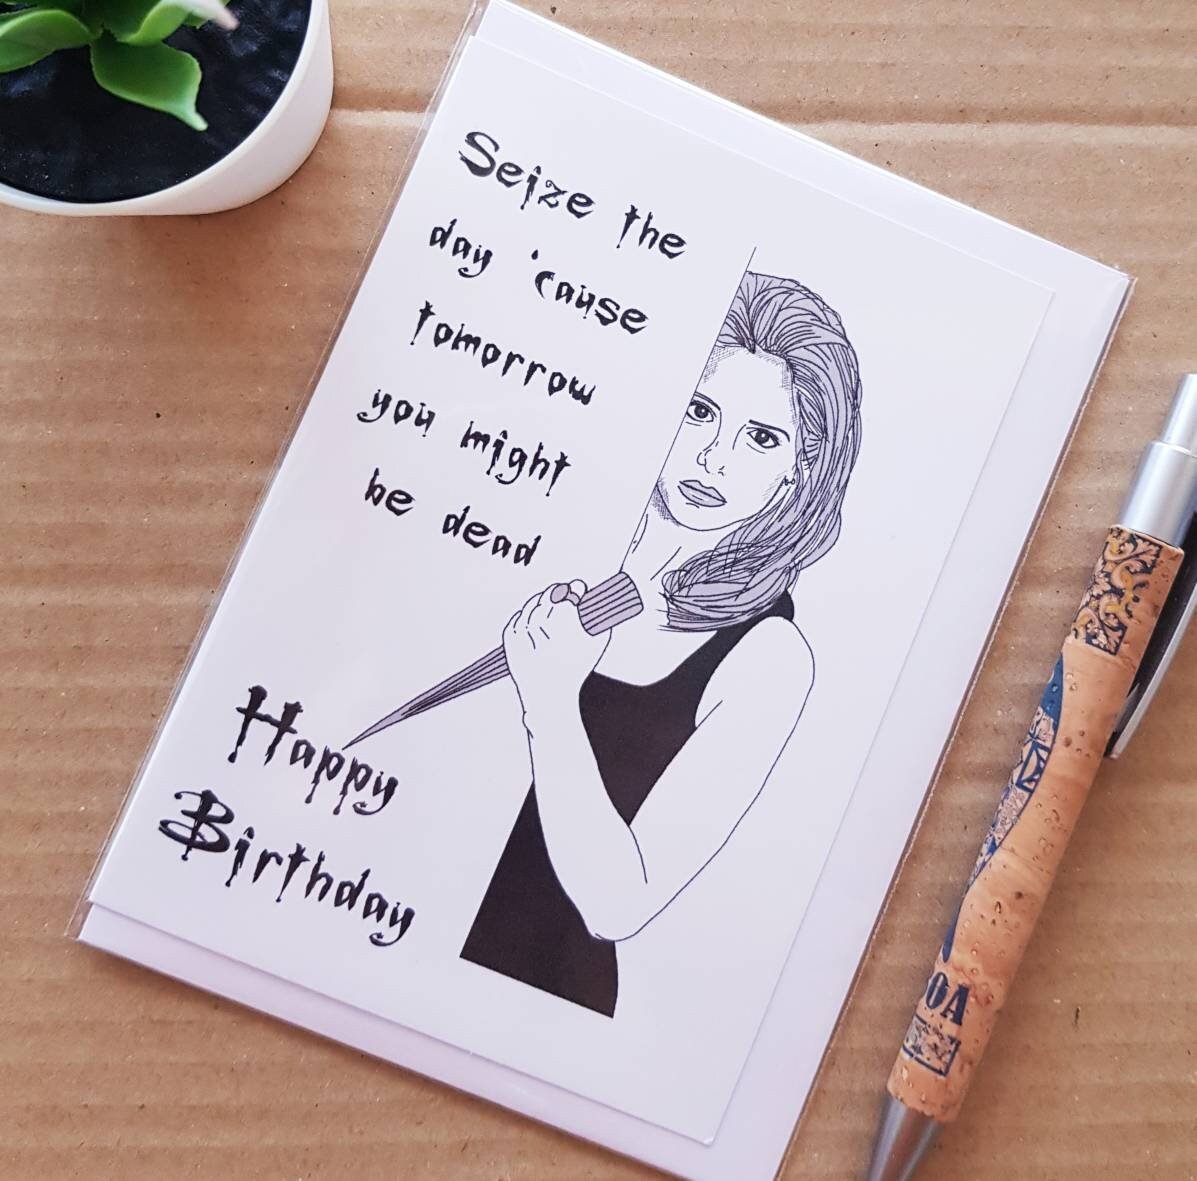 Seize the
day 'cause
tomorrow
you might
be dead
Happy
Birthday
OA